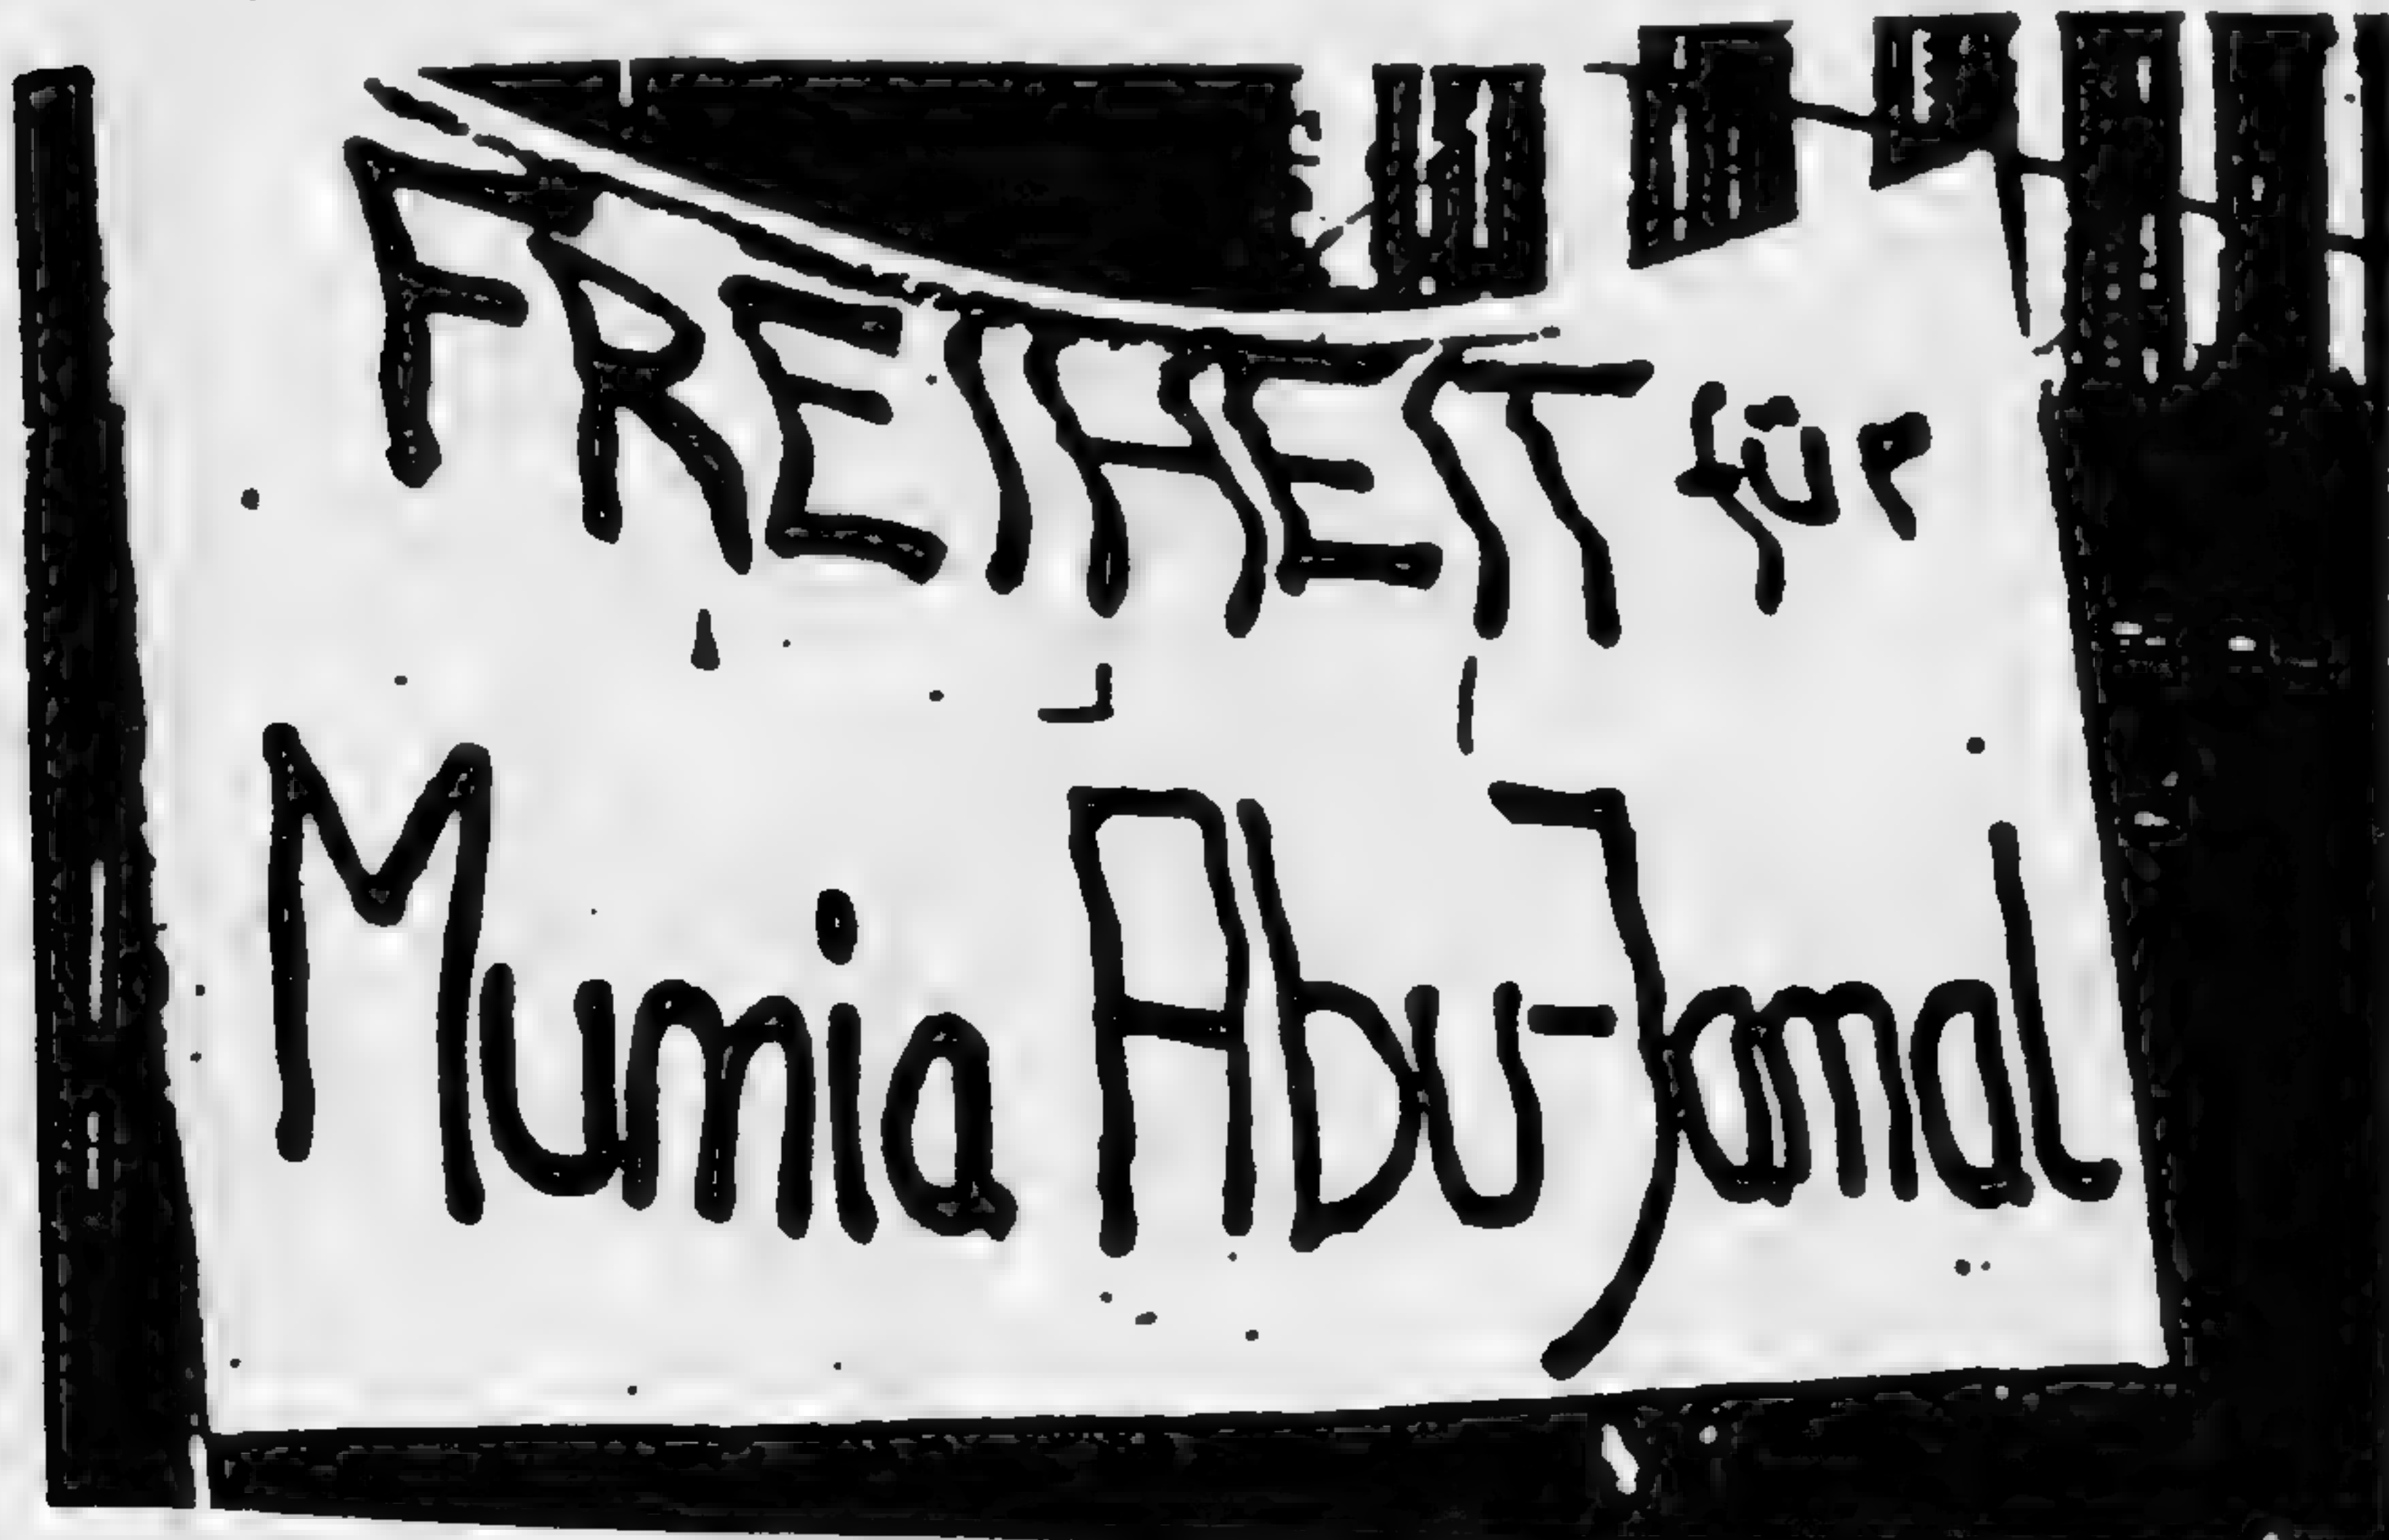 FREIHEIT für
Mumia Abu-Jamal